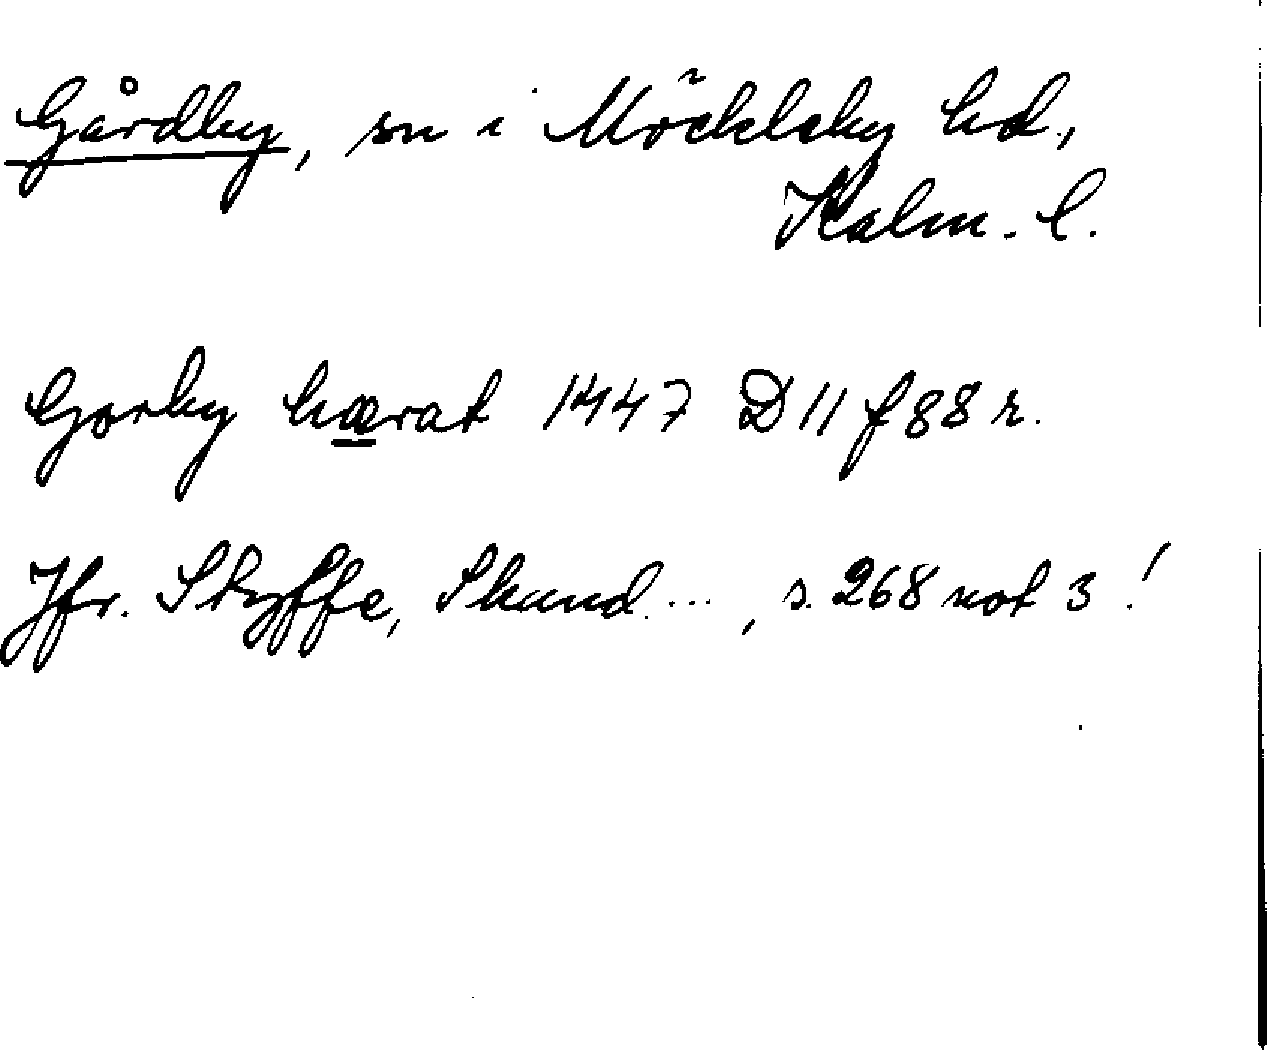 Gårdby, sn i Möckleby hd.,
Kalm. l.
Gorby hærat 1447 D 11 f 88 r.
Jfr. Styffe, Skand. ..., s. 268 not 3!